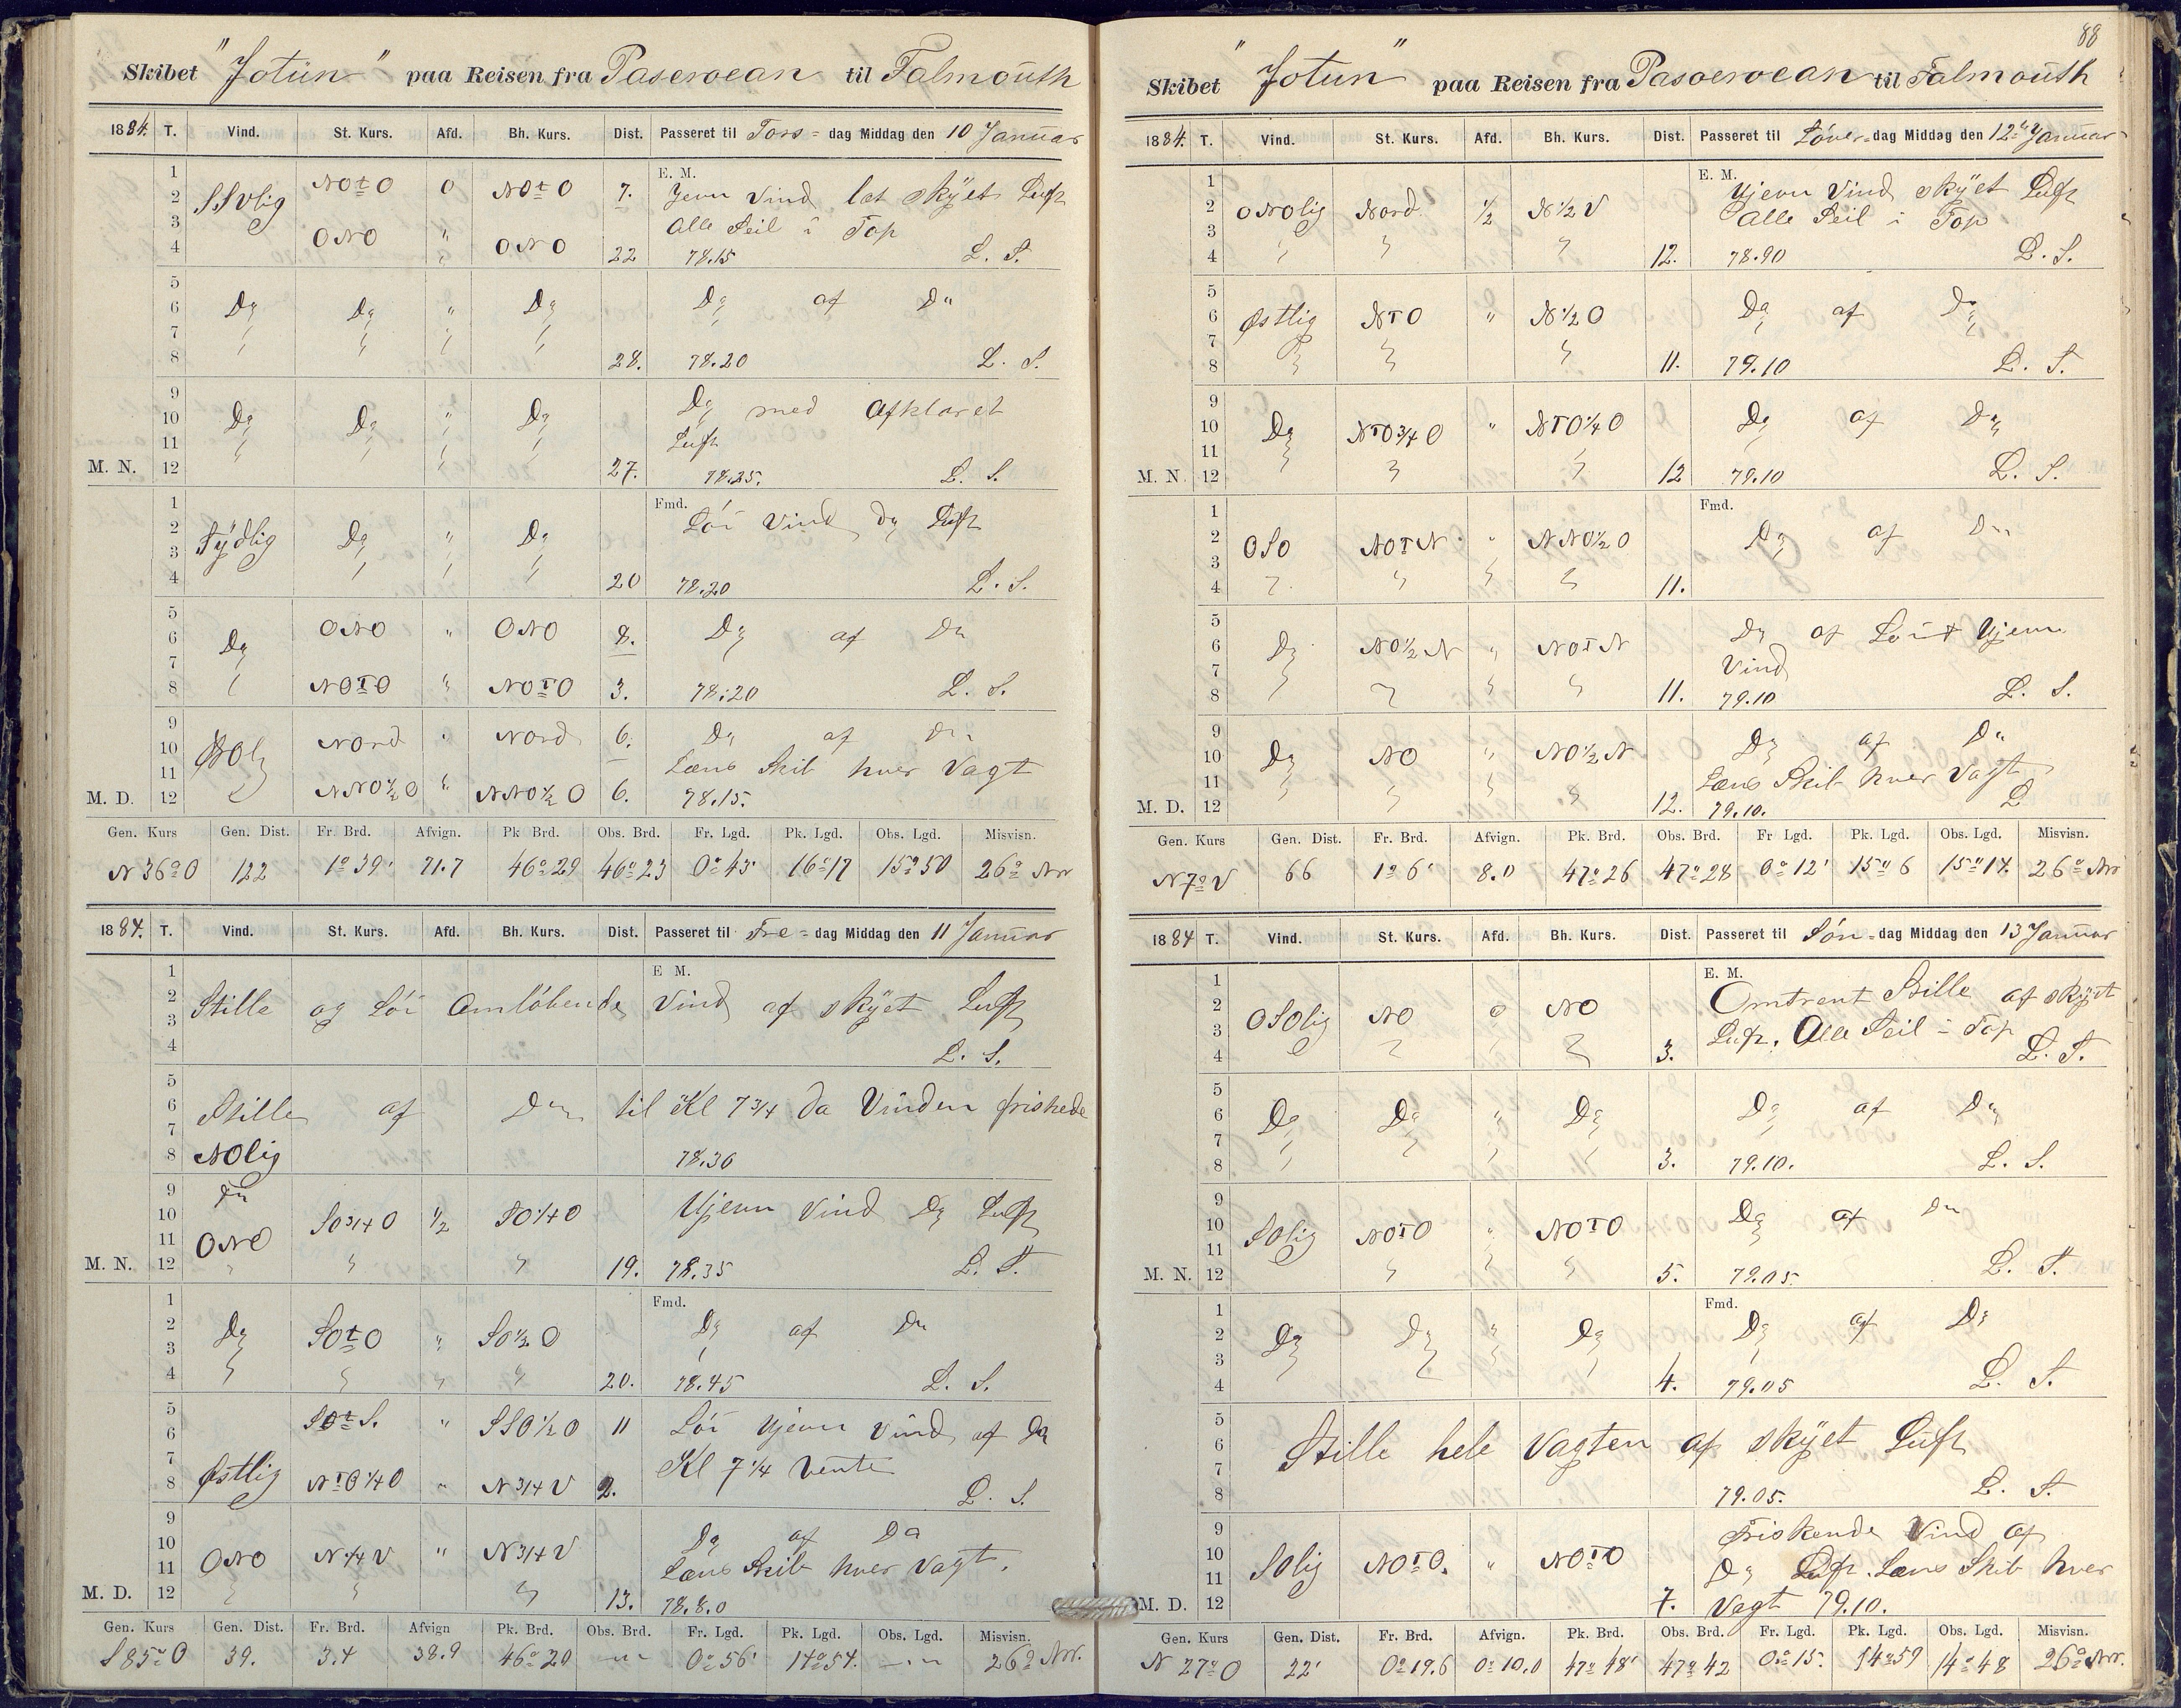 Skibet "Jotun" paa Reisen fra Pasoeroean til Falmouth
1884. T. Vind. St. Kurs. Afd. Bh. Kurs. Dist. Passeret til Tors-dag Middag den 10 Januar
1 E. M.
2 SSvlig NOtO 0 NOtO 7. Jevn Vind let skyet Luft
3 Alle Seil i Top
4 ONO " ONO 22 78.15 L. S.
5
6 Do Do " Do Do af Do
7
8 28. 78.20 L. S.
9
10 Do Do " Do Do med Afklaret
11 Luft
M. N. 12 27. 78.25. L. S.
1 Fmd.
2 Sydlig Do " Do Lör Vind Do Luft
3
4 20 78.20 L. S.
5
6 Do ONO " ONO 8. Do af Do
7
8 NOTO " NOTO 3. 78.20 L. S.
9
10 Nord " Nord 6. Do af Do
11 Læns Skib hver Vagt
M. D. 12 NNO½O " NNO½O 6. 78.15.
Gen. Kurs Gen. Dist. Fr. Brd. Afvign. Pk Brd. Obs. Brd. Fr. Lgd. Pk. Lgd. Obs. Lgd. Misvisn.
N 36º O 122 1º 39' 71.7 46º 29 46º 23 0º 43' 16º 17 15º 50 26º Nv
1884. T. Vind. St. Kurs. Afd. Bh. Kurs. Dist. Passeret til Fre-dag Middag den 11 Januar
1 E M.
2 Stille og Lör Omløbende Vind af skyet Luft
3
4 L. S.
5
6 Stille af Do til Kl 7¾ da Vinden friskede
7
8 NOlig 78.30
9 Do
10 SO¾O ½ SO¼O Ujevn Vind Do Luft
11 ONO
M. N. 12 19. 78.35 L. S.
1 Fmd.
2 Do SOtO " SO½O Do af Do
3
4 20. 78.45 L. S.
5 SOtS. " SSO½O 11 Lör Ujevn Vind af Do
6
7 Kl 7¼ Vente
8 Østlig NTO¼O " N¾V 2. L. S.
9
10 Do af Do
11 ONO N¼V " N¾V Læns Skib hver Vagt.
M. D. 12 13. 78.8.0
Gen. Kurs Gen. Dist. Fr. Brd. Afvign Pk. Brd. Obs. Brd. Fr. Lgd. Pk. Lgd. Obs. Lgd. Misvisn.
S 85º O 39. 3.4 38.9 46º 20 — " 0º 56' 14º 54. — " 26º Nv.
88
Skibet "Jotun" paa Reisen fra Pasoeroean til Falmouth
1884. T. Vind. St. Kurs. Afd. Bh. Kurs. Dist. Passeret til Löver-dag Middag den 12te Januar
1 E. M.
2 ONOlig Nord ½ N½V Ujevn Vind skyet Luft
3 Alle Seil i Top
4 12. 78.90 L. S.
5
6 Østlig NTO " N½O Do af Do
7
8 11. 79.10 L. S.
9
10 Do NTO¾O " NTO¼O Do af Do
11
M. N. 12 12 79.10 L. S.
1 Fmd.
2 OSO NOTN " NNO½O Do af Do
3
4 11.
5
6 Do NO½N " NOTN Do af Lör Ujevn
7 Vind
8 11. 79.10 L. S.
9
10 Do NO " NO½N Do af Do
11 Læns Skib hver Vagt
M. D. 12 12. 79.10. L
Gen. Kurs Gen. Dist. Fr. Brd. Afvign. Pk. Brd. Obs. Brd. Fr Lgd. Pk. Lgd. Obs. Lgd. Misvisn.
N 7º V 66 1º 6' 8.0 47º 26 47º 28 0º 12' 15º 6 15º 14. 26º Nv
1884 T. Vind. St. Kurs. Afd. Bh. Kurs. Dist. Passeret til Sön-dag Middag den 13 Januar
1 E. M.
2 OSOlig NO 0 NO Omtrent Stille af skyet
3 Luft. Alle Seil i Top
4 3. L. S.
5
6 Do Do " Do Do af Do
7
8 3. 79.10. L. S.
9
10 SOlig NOTO " NOTO Do af Do
11
M. N. 12 5. 79.05 L. S.
1 Fmd.
2 Do Do " Do Do af Do
3
4 4. 79.05 L. S.
5
6 Stille hele Vagten af skyet Luft
7
8 79.05. L. S.
9 Friskende Vind af
10 SOlig NOTO. " NOTO Do Luft. Læns Skib hver
11
M. D. 12 7. Vagt 79.10.
Gen. Kurs Gen. Dist. Fr. Brd. Afvign. Pk. Brd. Obs. Brd. Fr. Lgd. Pk. Lgd. Obs. Lgd. Misvisn.
N 27º O 22' 0º 19.6 0º 10.0 47º 48' 47º 42 0º 15'. 14º 59 14º 48 26º Nv.